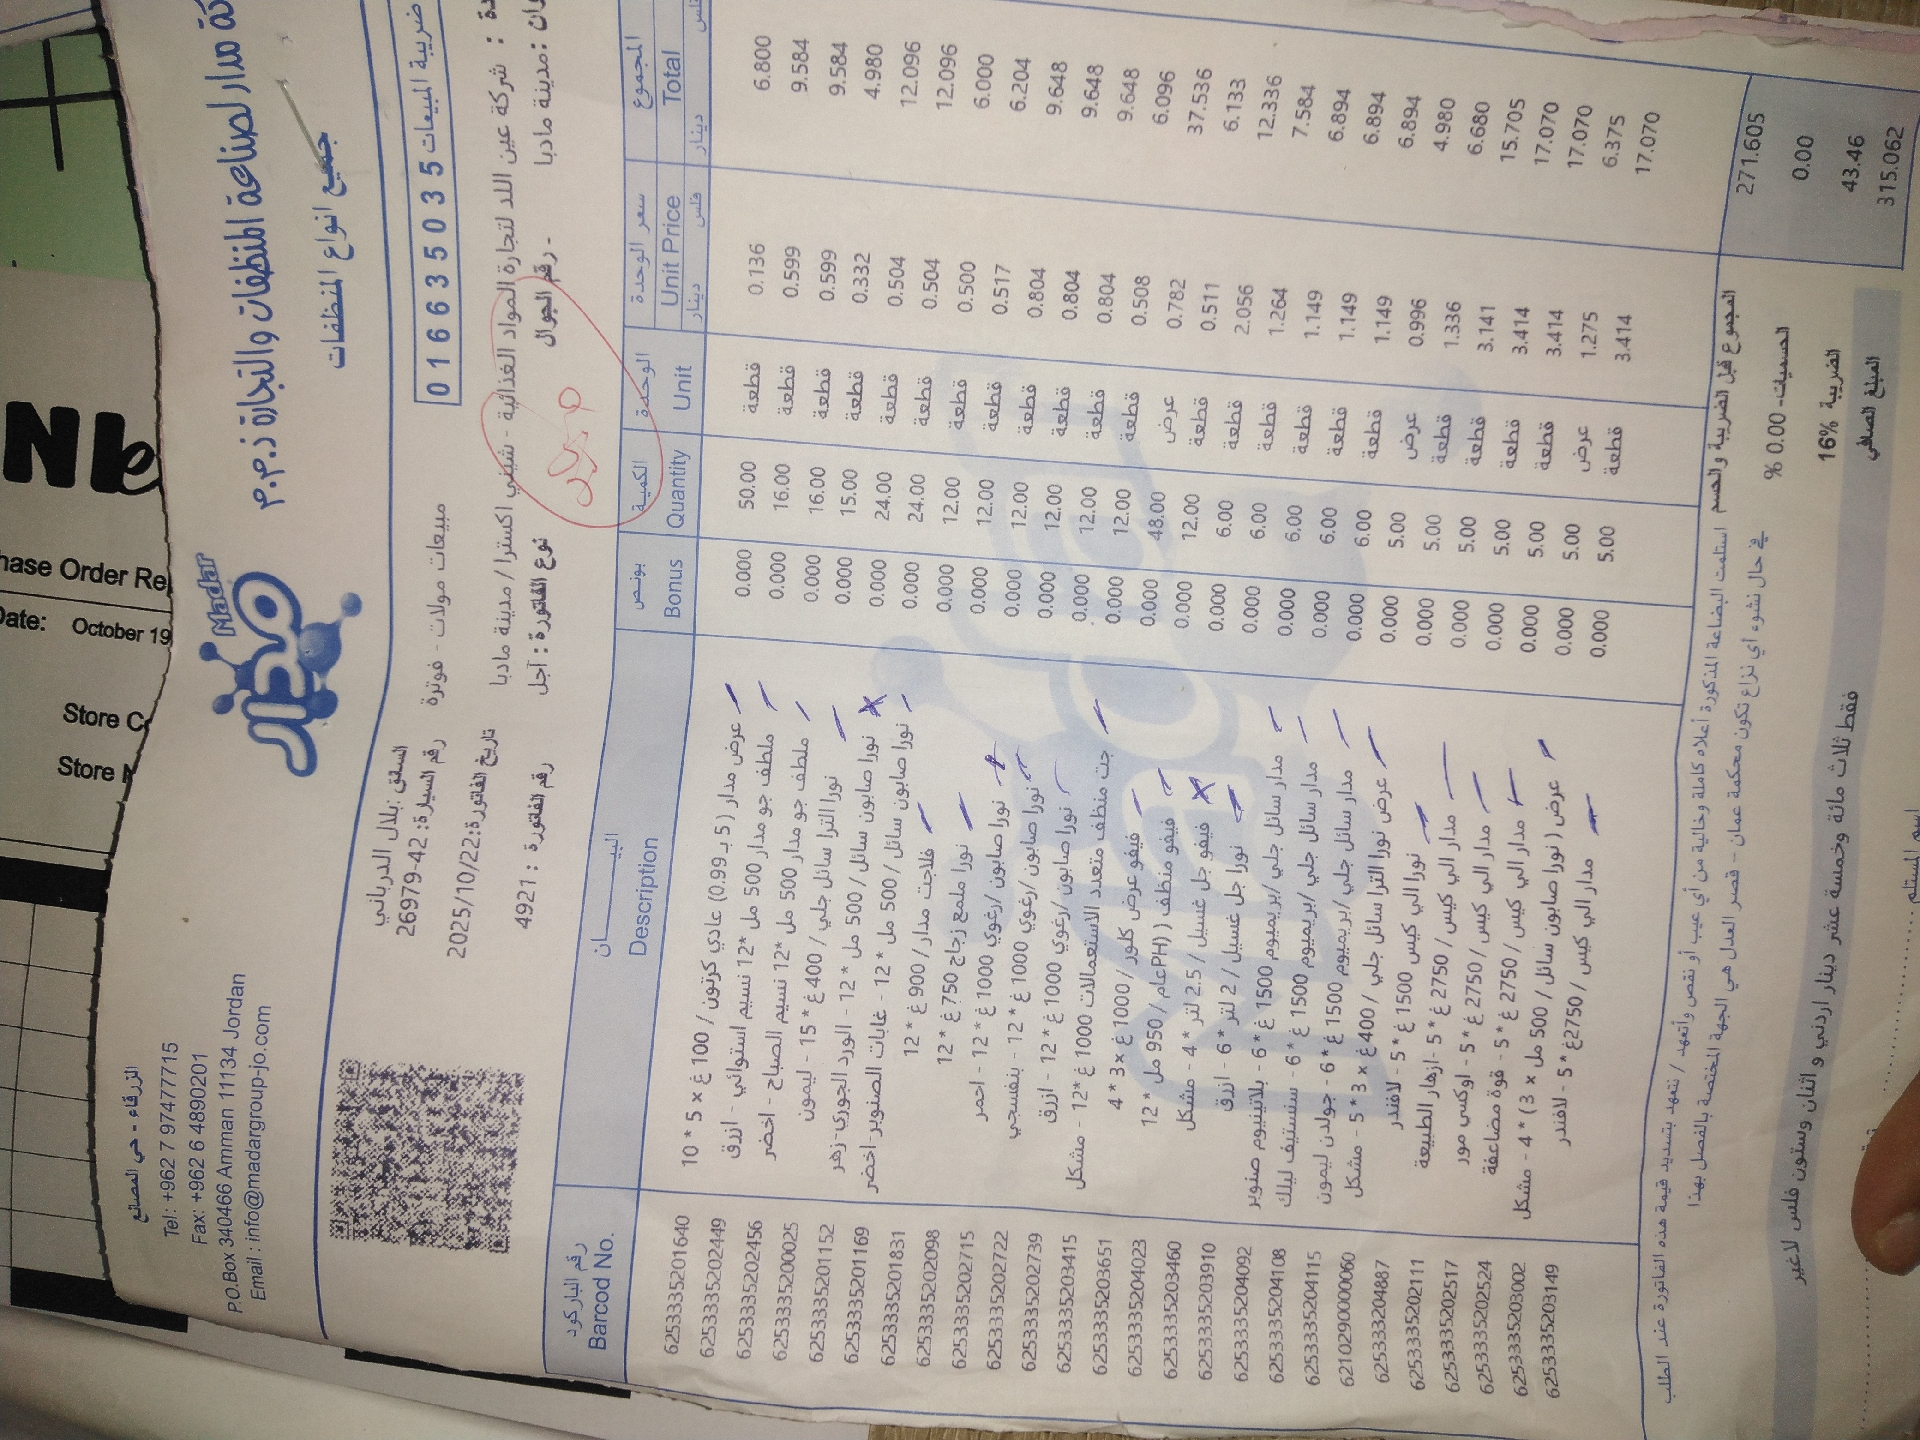 كة مدار لصناعة المنظفات والتجارة ذ.م.م
جميع انواع المنظفات
Madar
مدار
الزرقاء - حي المصانع
Tel: +962 7 97477715
Fax: +962 6 4890201
P.O.Box 340466 Amman 11134 Jordan
Email : info@madargroup-jo.com
ضريبة المبيعات 016635035
مبيعات مولات - فوترة
السائق :بلال الدرباني
رقم السيارة: 42-26979
دة : شركة عين اللد لتجارة المواد الغذائية - شيني اكسترا / مدينة مادبا
تاريخ الفاتورة:2025/10/22
وان :مدينة مادبا
رقم الجوال -
نوع الفاتورة : آجل
رقم الفاتورة : 4921
رقم الباركود البيـــــان بونص الكمية الوحدة سعر الوحدة المجموع
Barcod No. Description Bonus Quantity Unit Unit Price Total
دينار فلس دينار فلس
6253335201640 عرض مدار ( 5 بـ 0.99) عادي كرتون / 100 غ x 5 * 10 0.000 50.00 قطعة 0.136 6.800
6253335202449 ملطف جو مدار 500 مل *12 نسيم استوائي - ازرق 0.000 16.00 قطعة 0.599 9.584
6253335202456 ملطف جو مدار 500 مل *12 نسيم الصباح - اخضر 0.000 16.00 قطعة 0.599 9.584
6253335200025 نورا الترا سائل جلي / 400 غ * 15 - ليمون 0.000 15.00 قطعة 0.332 4.980
6253335201152 نورا صابون سائل / 500 مل * 12 - الورد الجوري-زهر 0.000 24.00 قطعة 0.504 12.096
6253335201169 نورا صابون سائل / 500 مل * 12 - غابات الصنوبر-اخضر 0.000 24.00 قطعة 0.504 12.096
6253335201831 فلاجت مدار / 900 غ * 12 0.000 12.00 قطعة 0.500 6.000
6253335202098 نورا ملمع زجاج 750 غ * 12 0.000 12.00 قطعة 0.517 6.204
6253335202715 نورا صابون /رغوي 1000 غ * 12 - احمر 0.000 12.00 قطعة 0.804 9.648
6253335202722 نورا صابون /رغوي 1000 غ * 12 - بنفسجي 0.000 12.00 قطعة 0.804 9.648
6253335202739 نورا صابون /رغوي 1000 غ * 12 - ازرق 0.000 12.00 قطعة 0.804 9.648
6253335203415 جت منظف متعدد الاستعمالات 1000 غ *12 - مشكل 0.000 12.00 قطعة 0.508 6.096
6253335203651 فيفو عرض كلور / 1000 غ x 3 * 4 0.000 48.00 عرض 0.782 37.536
6253335204023 فيفو منظف ( (PHعام / 950 مل * 12 0.000 12.00 قطعة 0.511 6.133
6253335203460 فيفو جل غسيل / 2.5 لتر * 4 - مشكل 0.000 6.00 قطعة 2.056 12.336
6253335203910 نورا جل غسيل / 2 لتر * 6 - ازرق 0.000 6.00 قطعة 1.264 7.584
6253335204092 مدار سائل جلي /بريميوم 1500 غ * 6 - بلاتينيوم صنوبر 0.000 6.00 قطعة 1.149 6.894
6253335204108 مدار سائل جلي /بريميوم 1500 غ * 6 - سنستيف ليلك 0.000 6.00 قطعة 1.149 6.894
6253335204115 مدار سائل جلي /بريميوم 1500 غ * 6 - جولدن ليمون 0.000 6.00 قطعة 1.149 6.894
6210290000060 عرض نورا الترا سائل جلي / 400 غ x 3 * 5 - مشكل 0.000 5.00 عرض 0.996 4.980
6253333204887 نورا الي كيس 1500 غ * 5 - لافندر 0.000 5.00 قطعة 1.336 6.680
6253335202111 مدار الي كيس / 2750 غ * 5 -ازهار الطبيعة 0.000 5.00 قطعة 3.141 15.705
6253335202517 مدار الي كيس / 2750 غ * 5 - اوكسي مور 0.000 5.00 قطعة 3.414 17.070
6253335202524 مدار الي كيس / 2750 غ * 5 - قوة مضاعفة 0.000 5.00 قطعة 3.414 17.070
6253335203002 عرض ( نورا صابون سائل / 500 مل x 3) * 4 - مشكل 0.000 5.00 عرض 1.275 6.375
6253335203149 مدار الي كيس / 2750غ * 5 - لافندر 0.000 5.00 قطعة 3.414 17.070
المجموع قبل الضريبة والحسم 271.605
الحسميات- 0.00 % 0.00
الضريبة 16% 43.46
المبلغ الصافي 315.062
استلمت البضاعة المذكورة أعلاه كاملة وخالية من أي عيب أو نقص وأتعهد / نتعهد بتسديد قيمة هذه الفاتورة عند الطلب
في حال نشوء أي نزاع تكون محكمة عمان - قصر العدل هي الجهة المختصة بالفصل بهذا
فقط ثلاث مائة وخمسة عشر دينار اردني و اثنان وستون فلس لاغير
اسم المستلم
hase Order Re
Date: October 19
Store
Store